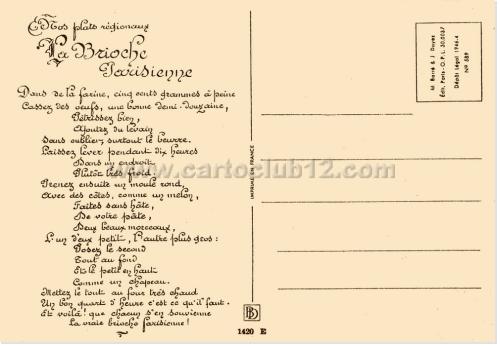 Nos plats régionaux
La Brioche
Parisienne
Dans de la farine, cinq cents grammes à peine
Cassez des oeufs, une bonne demi-douzaine,
Pétrissez bien,
Ajoutez du levain
Sans oublier surtout le beurre.
Laissez lever pendant dix heures
Dans un endroit
Plutôt très froid.
Prenez ensuite un moule rond,
Avec des côtes, comme un melon,
Faites sans hâte,
De votre pâte,
Deux beaux morceaux,
L'un d'eux petit, l'autre plus gros:
Posez le second
Tout au fond
Et le petit en haut
Comme un chapeau.
Mettez le tout au four très chaud
Un bon quart d'heure c'est ce qu'il faut.
Et voilà! que chacun s'en souvienne
La vraie brioche Parisienne!
www.cartoclub12.com
IMPRIMÉ EN FRANCE
BD
1420 E
M. Barré & J. Dayez
Édit. Paris-O.P.L. 30.0037
Dépôt Légal 1946-4
N° 589